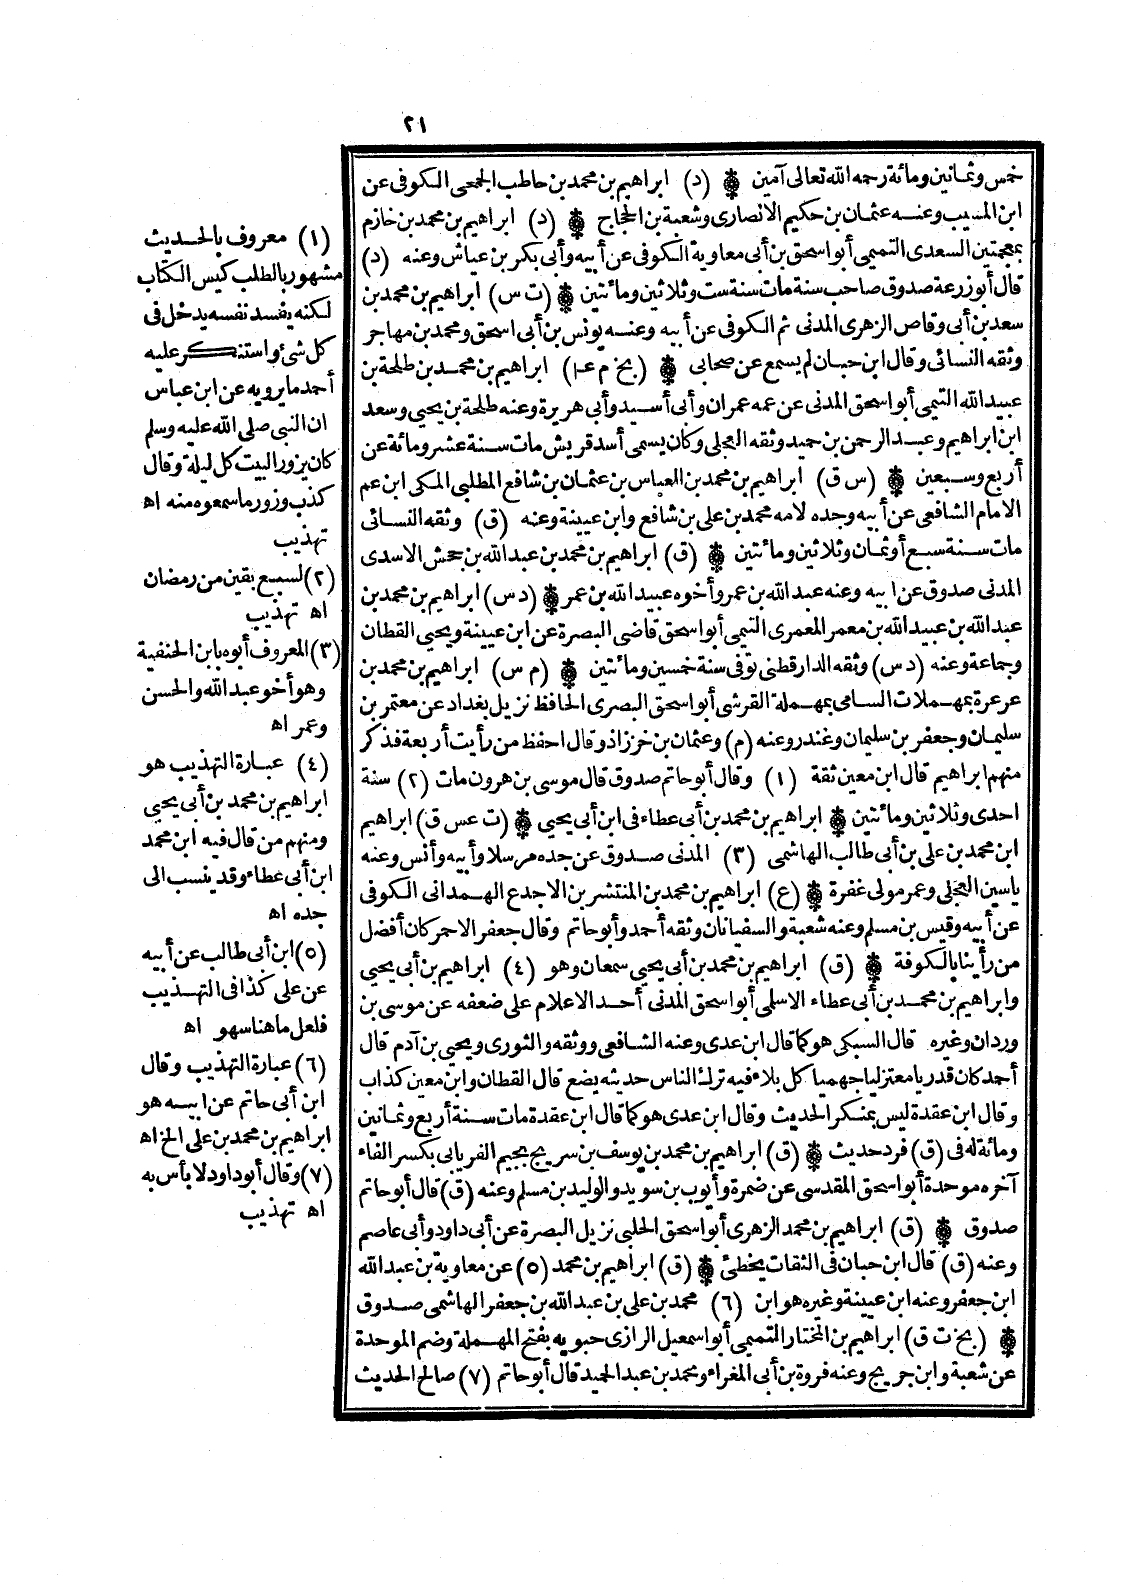 ٢١
خمس وثمانين ومائة رحمه الله تعالى آمين ❁ (د) ابراهيم بن محمد بن حاطب الجمحى الكوفى عن
ابن المسيب وعنه عثمان بن حكيم الانصارى وشعبة بن الحجاج ❁ (د) ابراهيم بن محمد بن خازم
بمعجمتين السعدى التميمى أبو اسحق بن أبى معاوية الكوفى عن أبيه وأبى بكر بن عياش وعنه (د)
قال أبو زرعة صدوق صاحب سنة مات سنة ست وثلاثين ومائتين ❁ (ت س) ابراهيم بن محمد بن
سعد بن أبى وقاص الزهرى المدنى ثم الكوفى عن أبيه وعنه يونس بن أبى اسحق ومحمد بن مهاجر
وثقه النسائى وقال ابن حبان لم يسمع عن صحابى ❁ (بخ م عـا) ابراهيم بن محمد بن طلحة بن
عبيد الله التيمى أبو اسحق المدنى عن عمه عمران وأبى أسيد وأبى هريرة وعنه طلحة بن يحيى وسعد
ابن ابراهيم وعبد الرحمن بن حميد وثقه العجلى وكان يسمى أسد قريش مات سنة عشر ومائة عن
أربع وسبعين ❁ (س ق) ابراهيم بن محمد بن العباس بن عثمان بن شافع المطلبى المكى ابن عم
الامام الشافعى عن أبيه وجده لامه محمد بن على بن شافع وابن عيينة وعنه (ق) وثقه النسائى
مات سنة سبع أو ثمان وثلاثين ومائتين ❁ (ق) ابراهيم بن محمد بن عبد الله بن جحش الاسدى
المدنى صدوق عن ابيه وعنه عبد الله بن عمر وأخوه عبيد الله بن عمر ❁ (د س) ابراهيم بن محمد بن
عبد الله بن عبيد الله بن معمر المعمرى التيمى أبو اسحق قاضى البصرة عن ابن عيينة ويحيى القطان
وجماعة وعنه (د س) وثقه الدارقطنى توفى سنة خمسين ومائتين ❁ (م س) ابراهيم بن محمد بن
عرعرة بمهملات السامى بمهملة القرشى أبو اسحق البصرى الحافظ نزيل بغداد عن معتمر بن
سليمان وجعفر بن سليمان وغندر وعنه (م) وعثمان بن خرزاذ وقال احفظ من رأيت أربعة فذكر
منهم ابراهيم قال ابن معين ثقة (١) وقال أبو حاتم صدوق قال موسى بن هرون مات (٢) سنة
احدى وثلاثين ومائتين ❁ ابراهيم بن محمد بن أبى عطاء فى ابن أبى يحيى ❁ (ت عس ق) ابراهيم
ابن محمد بن على بن أبى طالب الهاشمى (٣) المدنى صدوق عن جده مرسلا وأبيه وأنس وعنه
ياسين العجلى وعمر مولى غفرة ❁ (ع) ابراهيم بن محمد بن المنتشر بن الاجدع الهمدانى الكوفى
عن أبيه وقيس بن مسلم وعنه شعبة والسفيانان وثقه أحمد وأبو حاتم وقال جعفر الاحمر كان أفضل
من رأينا بالكوفة ❁ (ق) ابراهيم بن محمد بن أبى يحيى سمعان وهو (٤) ابراهيم بن أبى يحيى
وابراهيم بن محمد بن أبى عطاء الاسلمى أبو اسحق المدنى أحد الاعلام على ضعفه عن موسى بن
وردان وغيره قال السبكى هو كما قال ابن عدى وعنه الشافعى ووثقه والثورى ويحيى بن آدم قال
أحمد كان قدريا معتزليا جهميا كل بلاء فيه ترك الناس حديثه يضع قال القطان وابن معين كذاب
وقال ابن عقدة ليس بمنكر الحديث وقال ابن عدى هو كما قال ابن عقدة مات سنة أربع وثمانين
ومائة له فى (ق) فرد حديث ❁ (ق) ابراهيم بن محمد بن يوسف بن سريج بجيم الفريابى بكسر الفاء
آخره موحدة أبو اسحق المقدسى عن ضمرة وأيوب بن سويد والوليد بن مسلم وعنه (ق) قال أبو حاتم
صدوق ❁ (ق) ابراهيم بن محمد الزهرى أبو اسحق الحلبى نزيل البصرة عن أبى داود وأبى عاصم
وعنه (ق) قال ابن حبان فى الثقات يخطئ ❁ (ق) ابراهيم بن محمد (٥) عن معاوية بن عبد الله
ابن جعفر وعنه ابن عيينة وغيره هو ابن (٦) محمد بن على بن عبد الله بن جعفر الهاشمى صدوق
❁ (بخ ت ق) ابراهيم بن المختار التميمى أبو اسمعيل الرازى حبويه بفتح المهملة وضم الموحدة
عن شعبة وابن جريج وعنه فروة بن أبى المغراء ومحمد بن عبد الحميد قال أبو حاتم (٧) صالح الحديث
(١) معروف بالحديث
مشهور بالطلب كيس الكتاب
لكنه يفسد نفسه يدخل فى
كل شئ واستنكر عليه
أحمد ما يرويه عن ابن عباس
ان النبى صلى الله عليه وسلم
كان يزور البيت كل ليلة وقال
كذب وزور ما سمعوه منه اه
تهذيب
(٢) لسبع بقين من رمضان
اه تهذيب
(٣) المعروف أبوه بابن الحنفية
وهو أخو عبد الله والحسن
وعمر اه
(٤) عبارة التهذيب هو
ابراهيم بن محمد بن أبى يحيى
ومنهم من قال فيه ابن محمد
ابن أبى عطاء وقد ينسب الى
جده اه
(٥) ابن أبى طالب عن أبيه
عن على كذا فى التهذيب
فلعل ما هنا سهو اه
(٦) عبارة التهذيب وقال
ابن أبى حاتم عن ابيه هو
ابراهيم بن محمد بن على الخ اه
(٧) وقال أبو داود لا بأس به
اه تهذيب